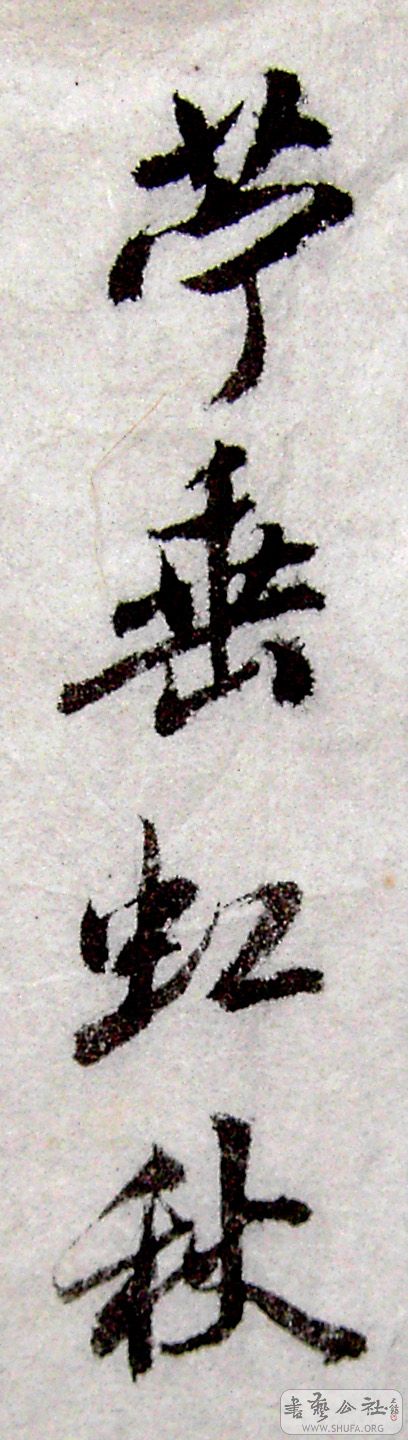 苧垂虹秋
書藝公社
WWW.SHUFA.ORG